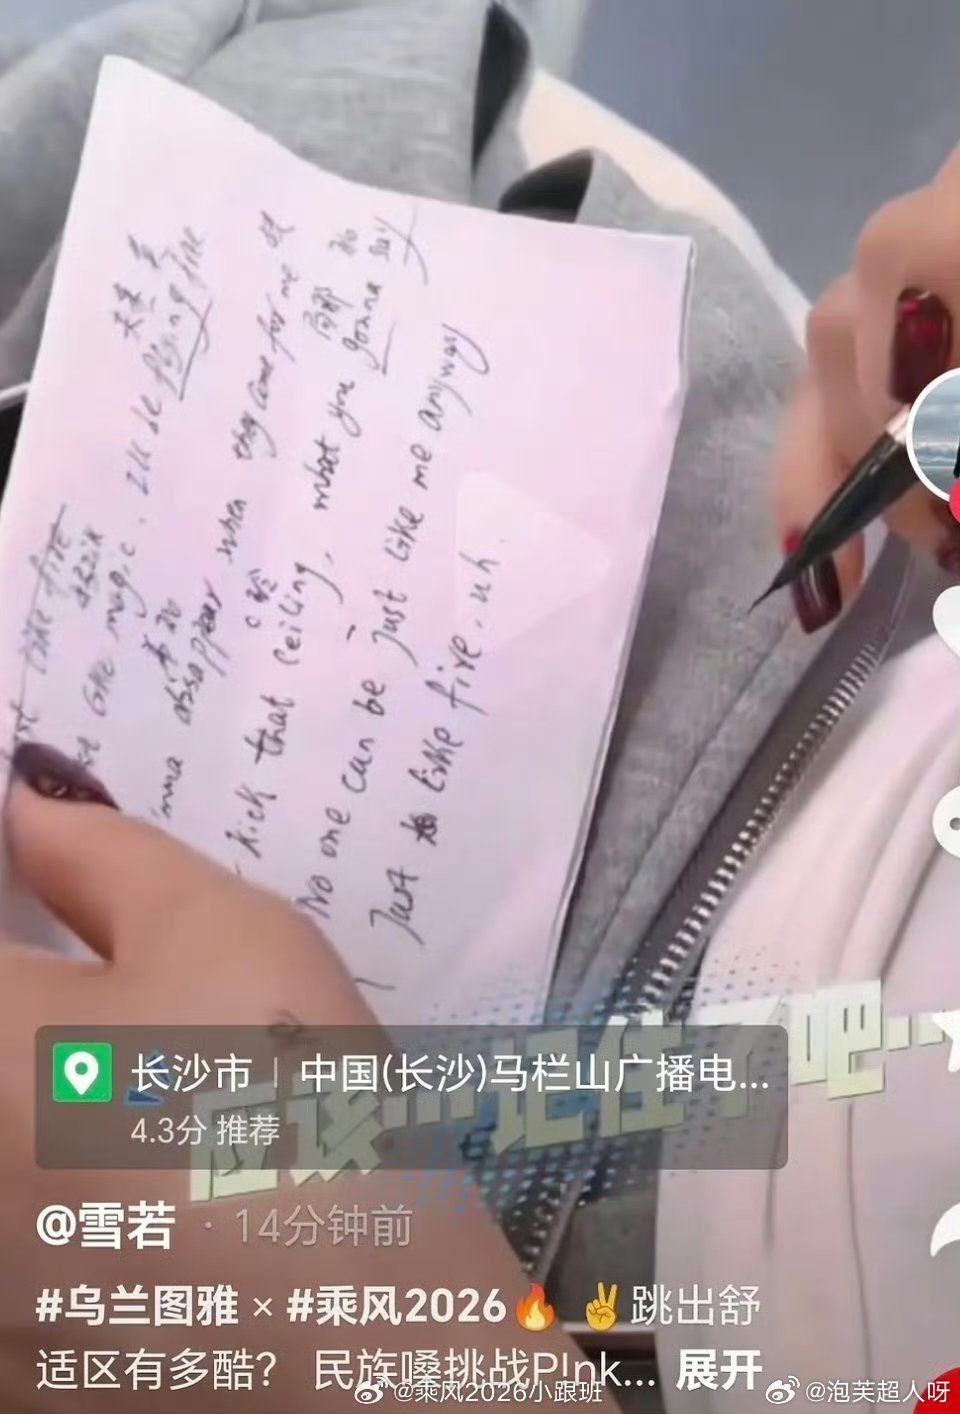 Just like fire
Just like magic. I'll be flying free
I'mma disappear when they come for me
kick that ceiling, what you gonna say
No one can be just like me anyway
Just like fire. uh.
应该……记住了吧……
长沙市 | 中国(长沙)马栏山广播电...
4.3分 推荐
@雪若 · 14分钟前
#乌兰图雅 × #乘风2026🔥 ✌️跳出舒
适区有多酷? 民族嗓挑战P!nk... 展开
@乘风2026小跟班
@泡芙超人呀